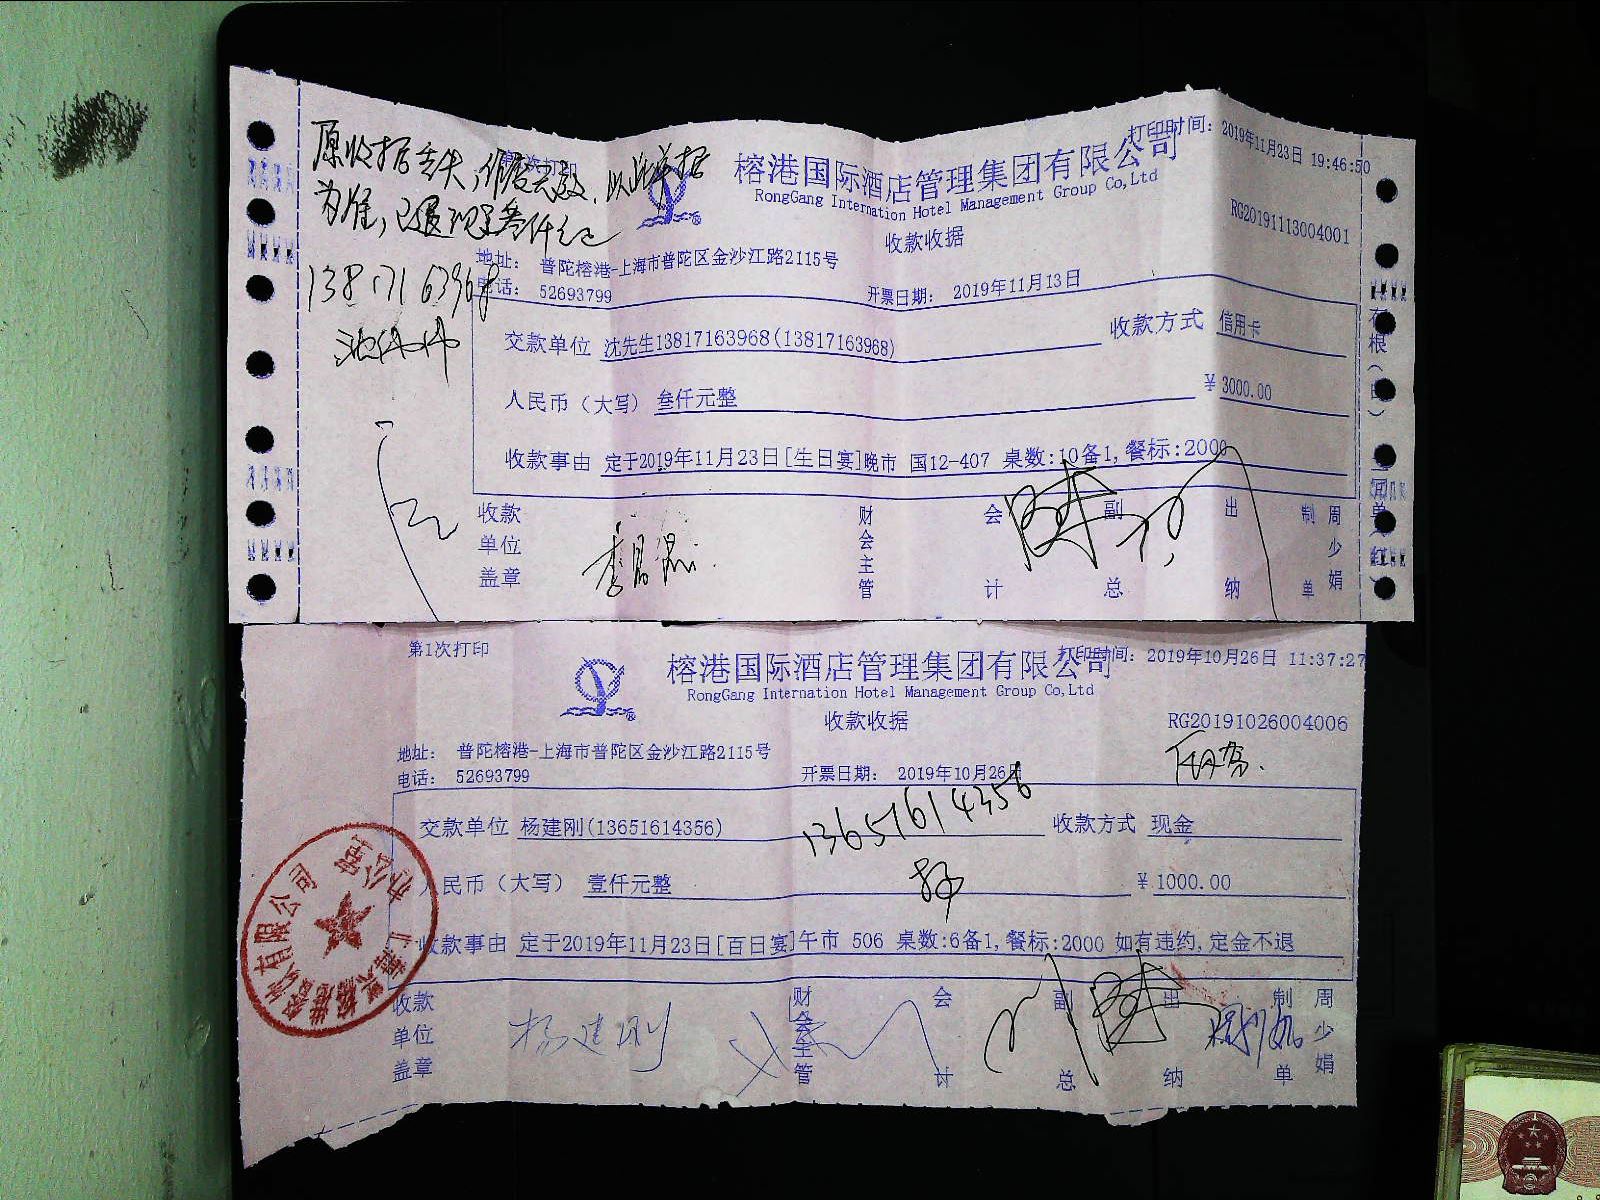 原收据丢失,作废无效.以此单据
为准,已退现金叁仟元
13817163968
沈伟伟
打印时间: 2019年11月23日 19:46:50
榕港国际酒店管理集团有限公司
RongGang Internation Hotel Management Group Co,Ltd
RG20191113004001
收款收据
地址: 普陀榕港-上海市普陀区金沙江路2115号
电话: 52693799
开票日期: 2019年11月13日
交款单位 沈先生13817163968(13817163968) 收款方式 信用卡
人民币(大写) 叁仟元整 ¥ 3000.00
收款事由 定于2019年11月23日[生日宴]晚市 国12-407 桌数:10备1,餐标:2000
收款单位盖章 财会主管 会计 副总 出纳 制单 周少娟
第1次打印
打印时间: 2019年10月26日 11:37:27
榕港国际酒店管理集团有限公司
RongGang Internation Hotel Management Group Co,Ltd
收款收据
RG20191026004006
地址: 普陀榕港-上海市普陀区金沙江路2115号
电话: 52693799
开票日期: 2019年10月26日
13651614356
交款单位 杨建刚(13651614356) 收款方式 现金
人民币(大写) 壹仟元整 ¥ 1000.00
收款事由 定于2019年11月23日[百日宴]午市 506 桌数:6备1,餐标:2000 如有违约,定金不退
收款单位盖章 财会主管 会计 副总 出纳 制单 周少娟
杨建刚